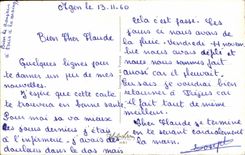 Agen le 13.11.60
Bien Cher Claude
Quelques lignes pour
te donner un peu de mes
nouvelles.
J'espère que cette carte
te trouvera en bonne santé
Pour moi sa va mieux
les jours derniers j'étais
à l'infirmerie, j'avais des
douleurs dans le dos mais
cela c'est passé. Ici
jours ci nous avons de
la pluie. Vendredi 11 novem
bre nous avons défilé et
nous nous sommes fait
car il pleuvait.
Tu sais je voudrai bien
retourner à
il fait tant de même
meilleur.
Cher Claude je termine
en te serrant cordialement
la main.
Joseph